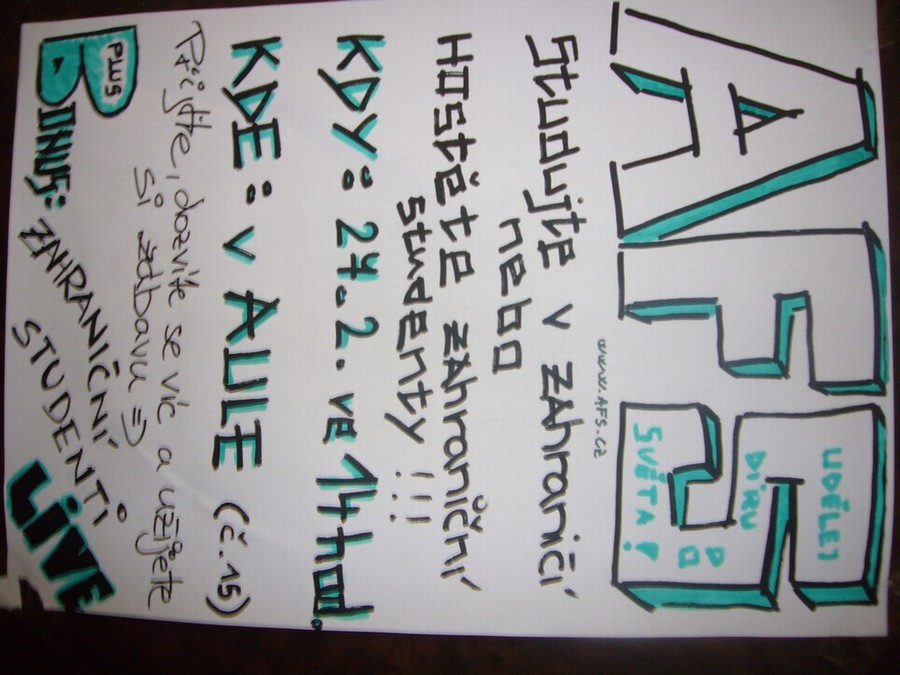 AFS
UDĚLEJ
DÍRU
DO
SVĚTA!
www.AFS.cz
Studujte v zahraničí
nebo
Hostěte zahraniční
studenty!!!
KDY: 24.2. ve 14 hod.
KDE: v AULE (č.15)
Přijďte, dozvíte se víc a užijete
si zábavu =>
PLUS
BONUS: ZAHRANIČNÍ
STUDENTI
LIVE